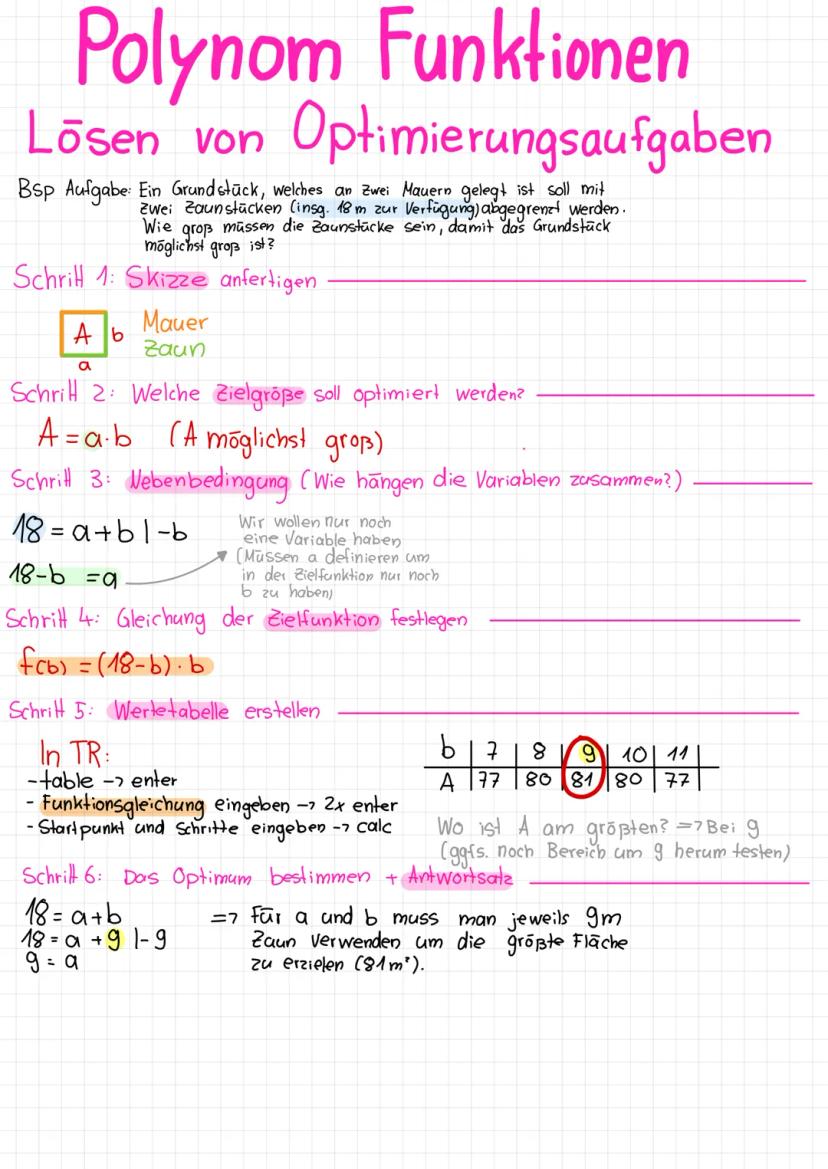 Polynom Funktionen
Lösen von Optimierungsaufgaben
Bsp Aufgabe: Ein Grundstück, welches an zwei Mauern gelegt ist soll mit
zwei Zaunstücken (insg. 18 m zur Verfügung) abgegrenzt werden.
Wie groß müssen die Zaunstücke sein, damit das Grundstück
möglichst groß ist?
Schritt 1: Skizze anfertigen
A b Mauer
Zaun
a
Schritt 2: Welche Zielgröße soll optimiert werden?
A = a·b (A möglichst groß)
Schritt 3: Nebenbedingung (Wie hängen die Variablen zusammen?)
18 = a+b |-b
18-b = a
Wir wollen nur noch
eine Variable haben
(Müssen a definieren um
in der Zielfunktion nur noch
b zu haben)
Schritt 4: Gleichung der Zielfunktion festlegen
f(b) = (18-b)·b
Schritt 5: Wertetabelle erstellen
In TR:
-table -> enter
- Funktionsgleichung eingeben -> 2x enter
- Startpunkt und Schritte eingeben -> calc
b | 7 | 8 | 9 | 10 | 11 |
A | 77 | 80 | 81 | 80 | 77 |
Wo ist A am größten? => Bei 9
(ggfs. noch Bereich um 9 herum testen)
Schritt 6: Das Optimum bestimmen + Antwortsatz
18 = a+b
18 = a +9 |-9
9 = a
=> Für a und b muss man jeweils 9m
Zaun verwenden um die größte Fläche
zu erzielen (81m²).